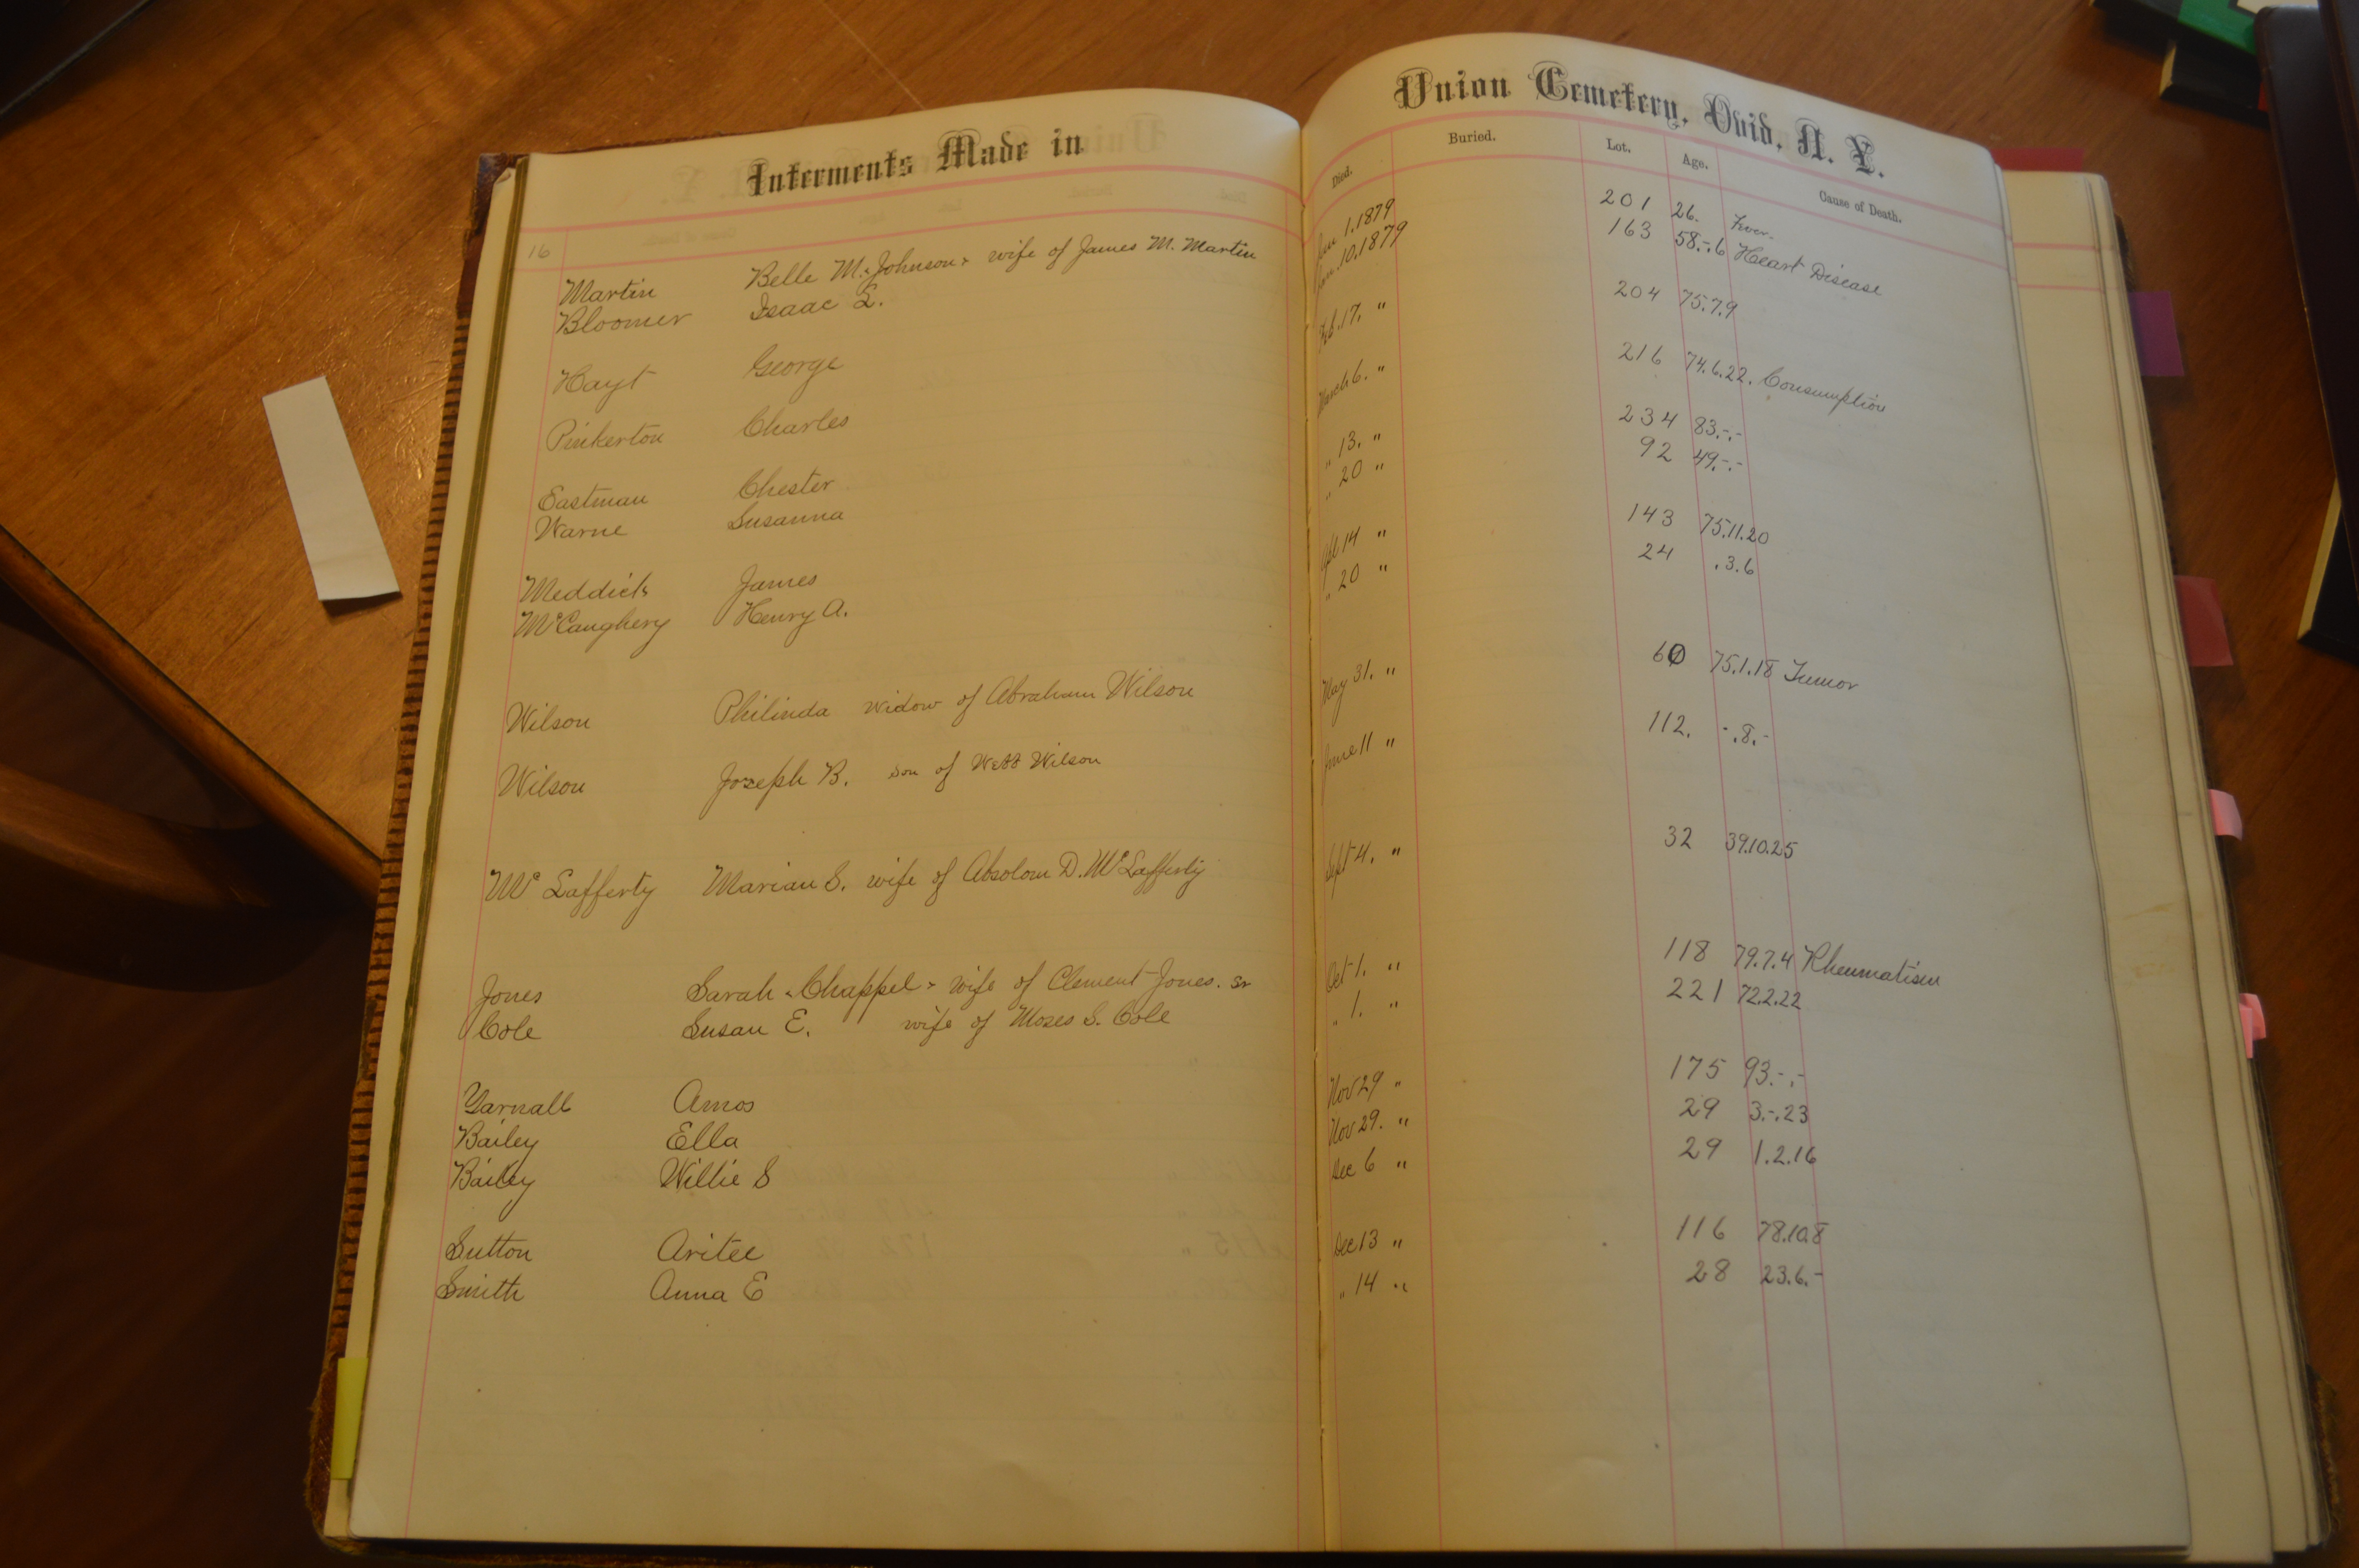 Interments Made in Union Cemetery, Ovid, N. Y.
Died. Buried. Lot. Age. Cause of Death.
16
Martin Belle M. "Johnson" wife of James M. Martin Jan 1. 1879 201 26. Fever.
Bloomer Isaac L. Jan. 10. 1879 163 58.-.6 Heart Disease
Hayt George Feb. 17. " 204 75.7.9
Pinkerton Charles March 6. " 216 74.6.22. Consumption
Eastman Chester " 13. " 234 83.-.-
Warne Susanna " 20 " 92 49.-.-
Meddick James Apl 14 " 143 75.11.20
McCaughery Henry A. " 20 " 24 .3.6
Wilson Philinda widow of Abraham Wilson May 31. " 60 75.1.18 Tumor
Wilson Joseph B. son of Webb Wilson June 11 " 112. -.8.-
McLafferty Marian S. wife of Absolom D. McLafferty Sept 4. " 32 39.10.25
Jones Sarah "Chappel" wife of Clement Jones. Sr Oct 1. " 118 79.7.4 Rheumatism
Cole Susan E. wife of Moses S. Cole " 1. " 221 72.2.22
Yarnall Amos Nov 29 " 175 93.-.-
Bailey Ella Nov 29. " 29 3.-.23
Bailey Willie S Dec 6 " 29 1.2.16
Sutton Aritee Dec 13 " 116 78.10.8
Smith Anna E " 14 " 28 23.6.-